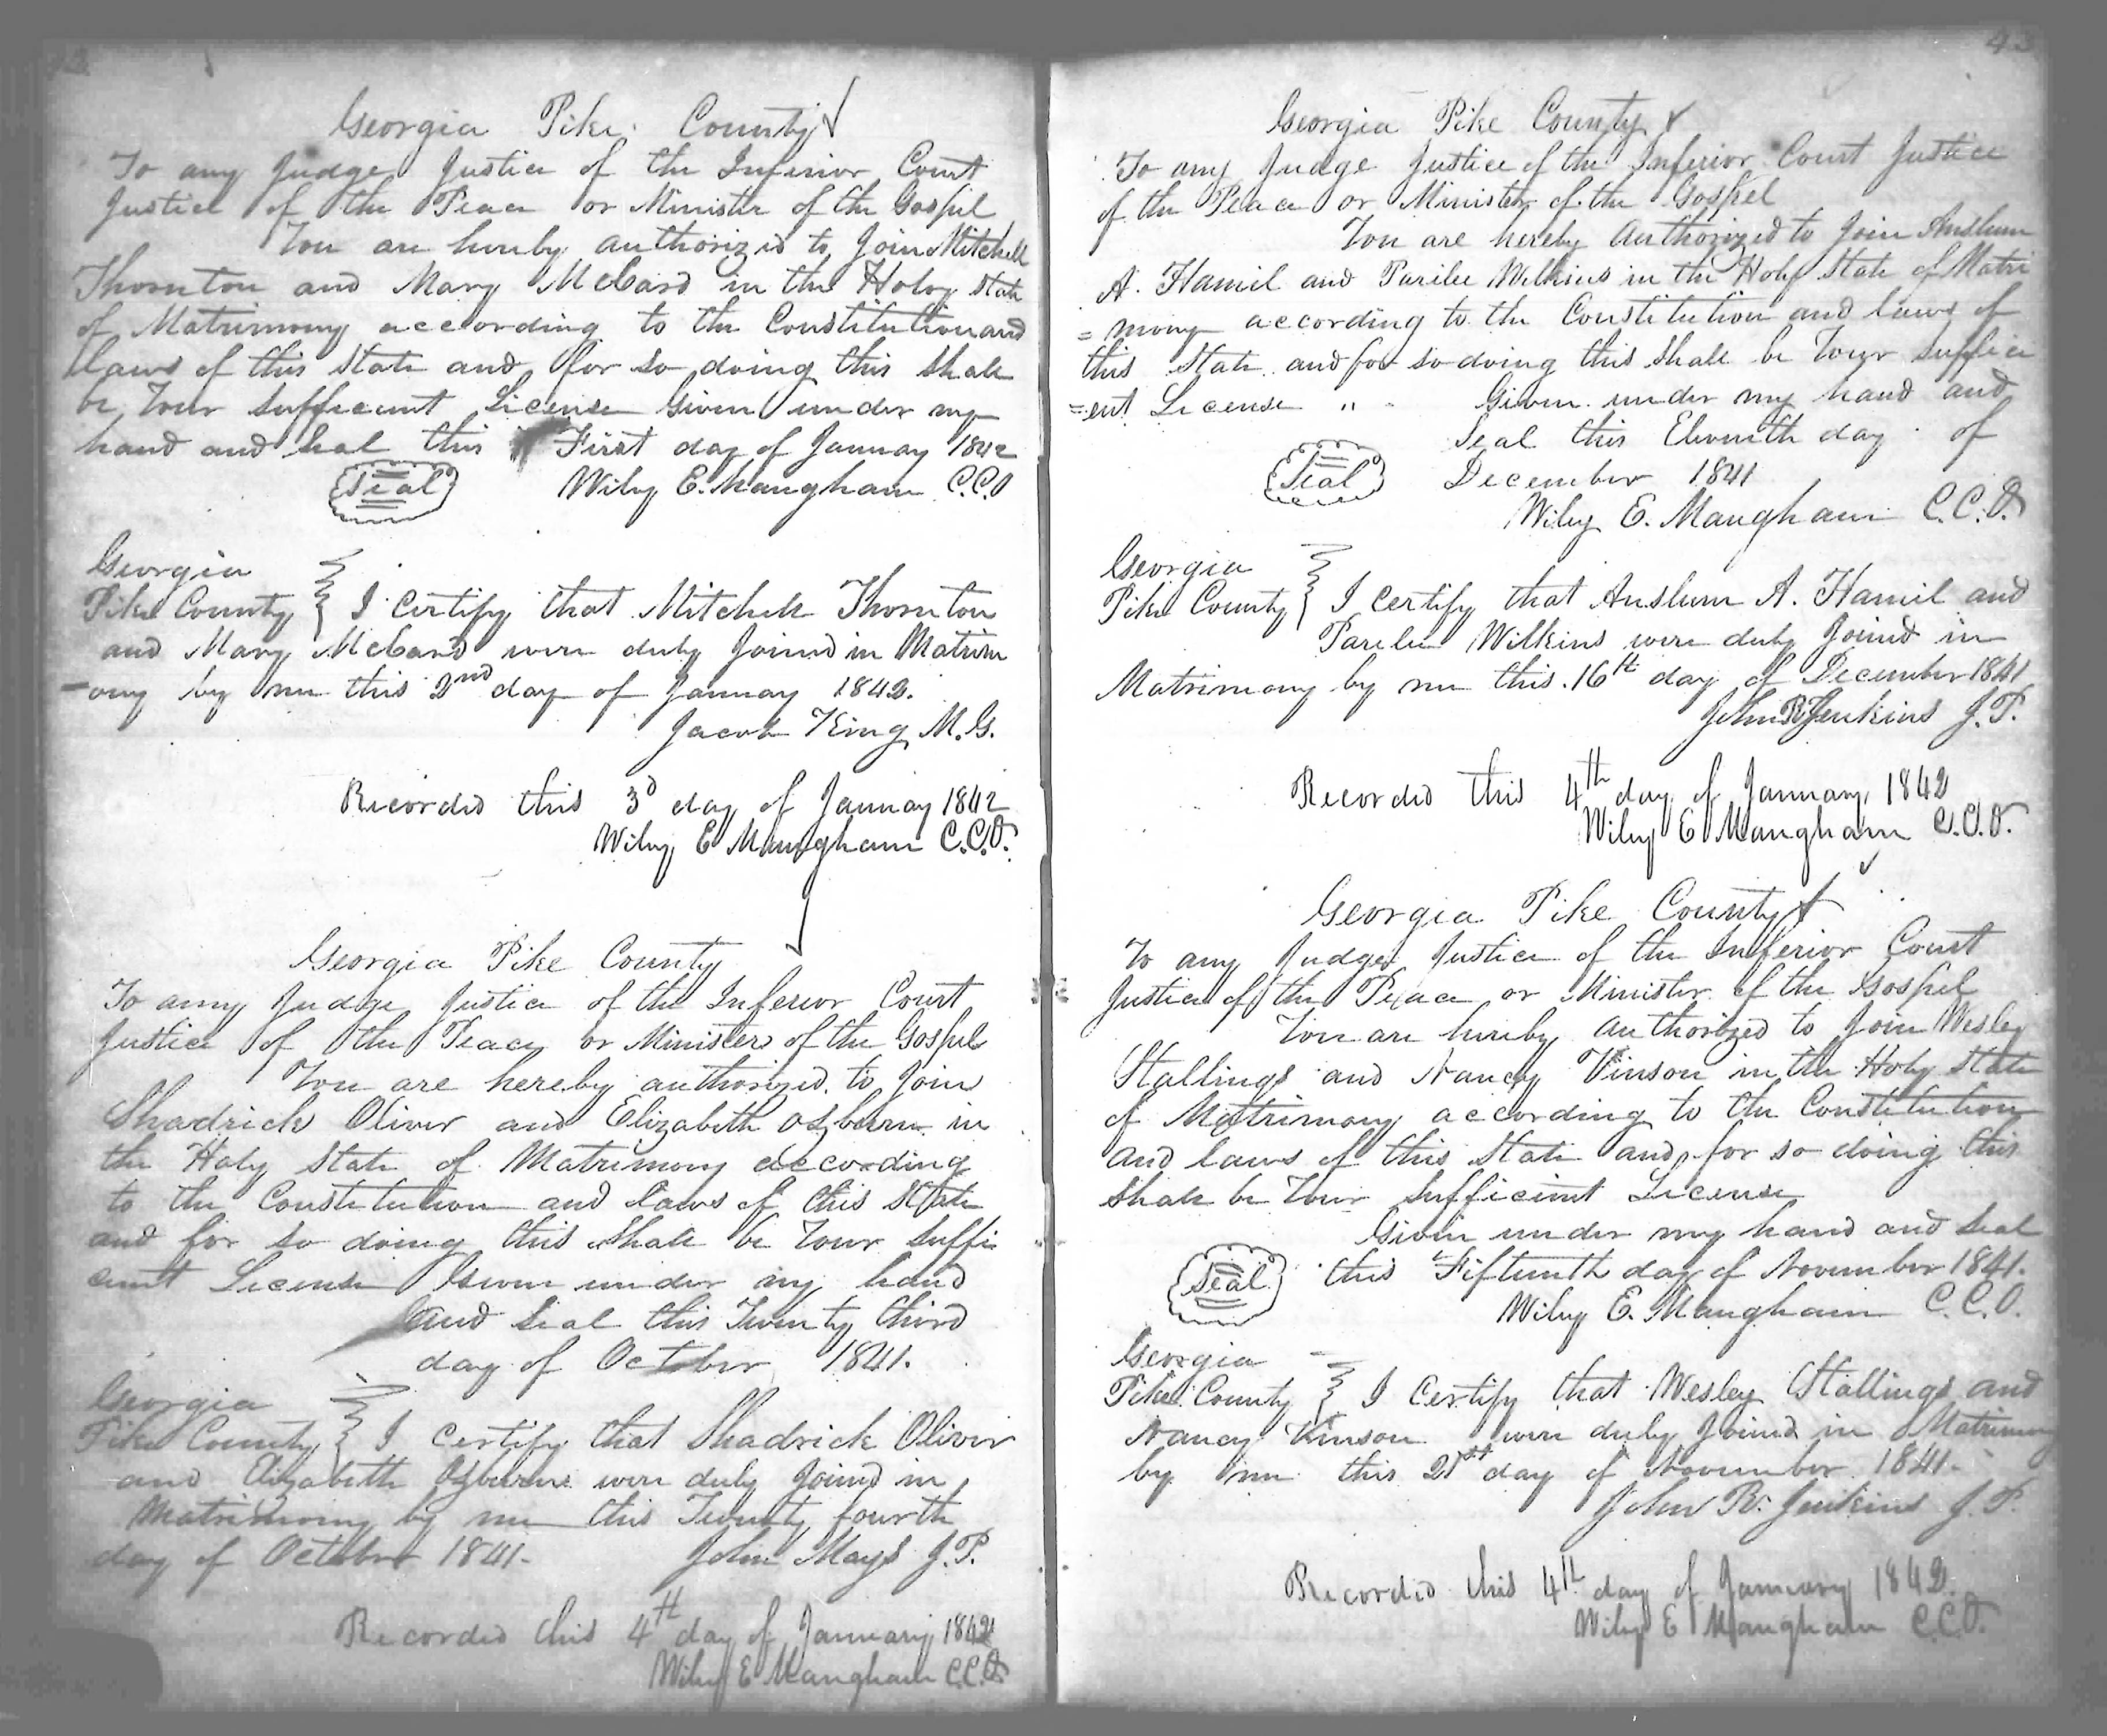 Georgia Pike County
To any Judge Justice of the Inferior Court
Justice of the Peace or Minister of the Gospel
You are hereby authorized to Join Mitchell
Thornton and Mary McCard in the Holy State
of Matrimony according to the Constitution and
laws of this State and for so doing this shall
be Your sufficient License Given under my
hand and seal this First day of January 1842
Seal
Wiley E. Mangham C.C.O
Georgia
Pike County } I Certify that Mitchell Thornton
and Mary McCard were duly Joined in Matrim
-ony by me this 2nd day of January 1842.
Jacob King M.G.
Recorded this 3d day of January 1842
Wiley E Mangham C.C.O.
Georgia Pike County
To any Judge Justice of the Inferior Court
Justice of the Peace or Minister of the Gospel
You are hereby authorized to Join
Shadrick Oliver and Elizabeth Ozburn in
the Holy State of Matrimony according
to the Constitution and laws of this State
and for so doing this shall be Your suffi
cient License Given under my hand
and Seal this Twenty third
day of October 1841.
Georgia
Pike County } I Certify that Shadrick Oliver
and Elizabeth Ozburn were duly Joined in
Matrimony by me this Twenty fourth
day of October 1841.
John Mays J.P.
Recorded this 4th day of January 1842
Wiley E Mangham C.C.O.
43
Georgia Pike County
To any Judge Justice of the Inferior Court Justice
of the Peace or Minister of the Gospel
You are hereby Authorized to Join Anslum
A. Hamil and Parilee Wilkins in the Holy State of Matri
=mony according to the Constitution and laws of
this State and for so doing this shall be Your suffici
=ent License " Given under my hand and
Seal this Eleventh day of
Seal
December 1841
Wiley E. Mangham C.C.O.
Georgia
Pike County } I Certify that Anslum A. Hamil and
Parilee Wilkins were duly Joined in
Matrimony by me this 16th day of December 1841
John R Jenkins J.P.
Recorded this 4th day of January, 1842
Wiley E Mangham C.C.O.
Georgia Pike County
To any Judge Justice of the Inferior Court
Justice of the Peace or Minister of the Gospel
You are hereby Authorized to Join Wesley
Stallings and Nancy Vinson in the Holy State
of Matrimony according to the Constitution
and laws of this State and for so doing this
shall be Your sufficient License
Given under my hand and seal
Seal
this Fifteenth day of November 1841.
Wiley E. Mangham C.C.O.
Georgia
Pike County } I Certify that Wesley Stallings and
Nancy Vinson were duly Joined in Matrimony
by me this 21st day of November 1841.
John R. Jenkins J.P.
Recorded this 4th day of January 1842.
Wiley E Mangham C.C.O.